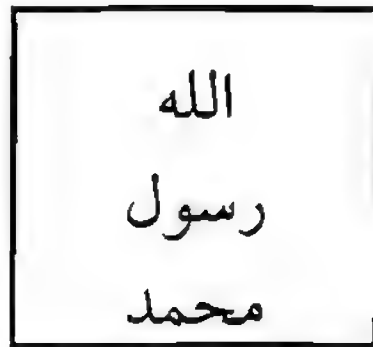 الله
رسول
محمد